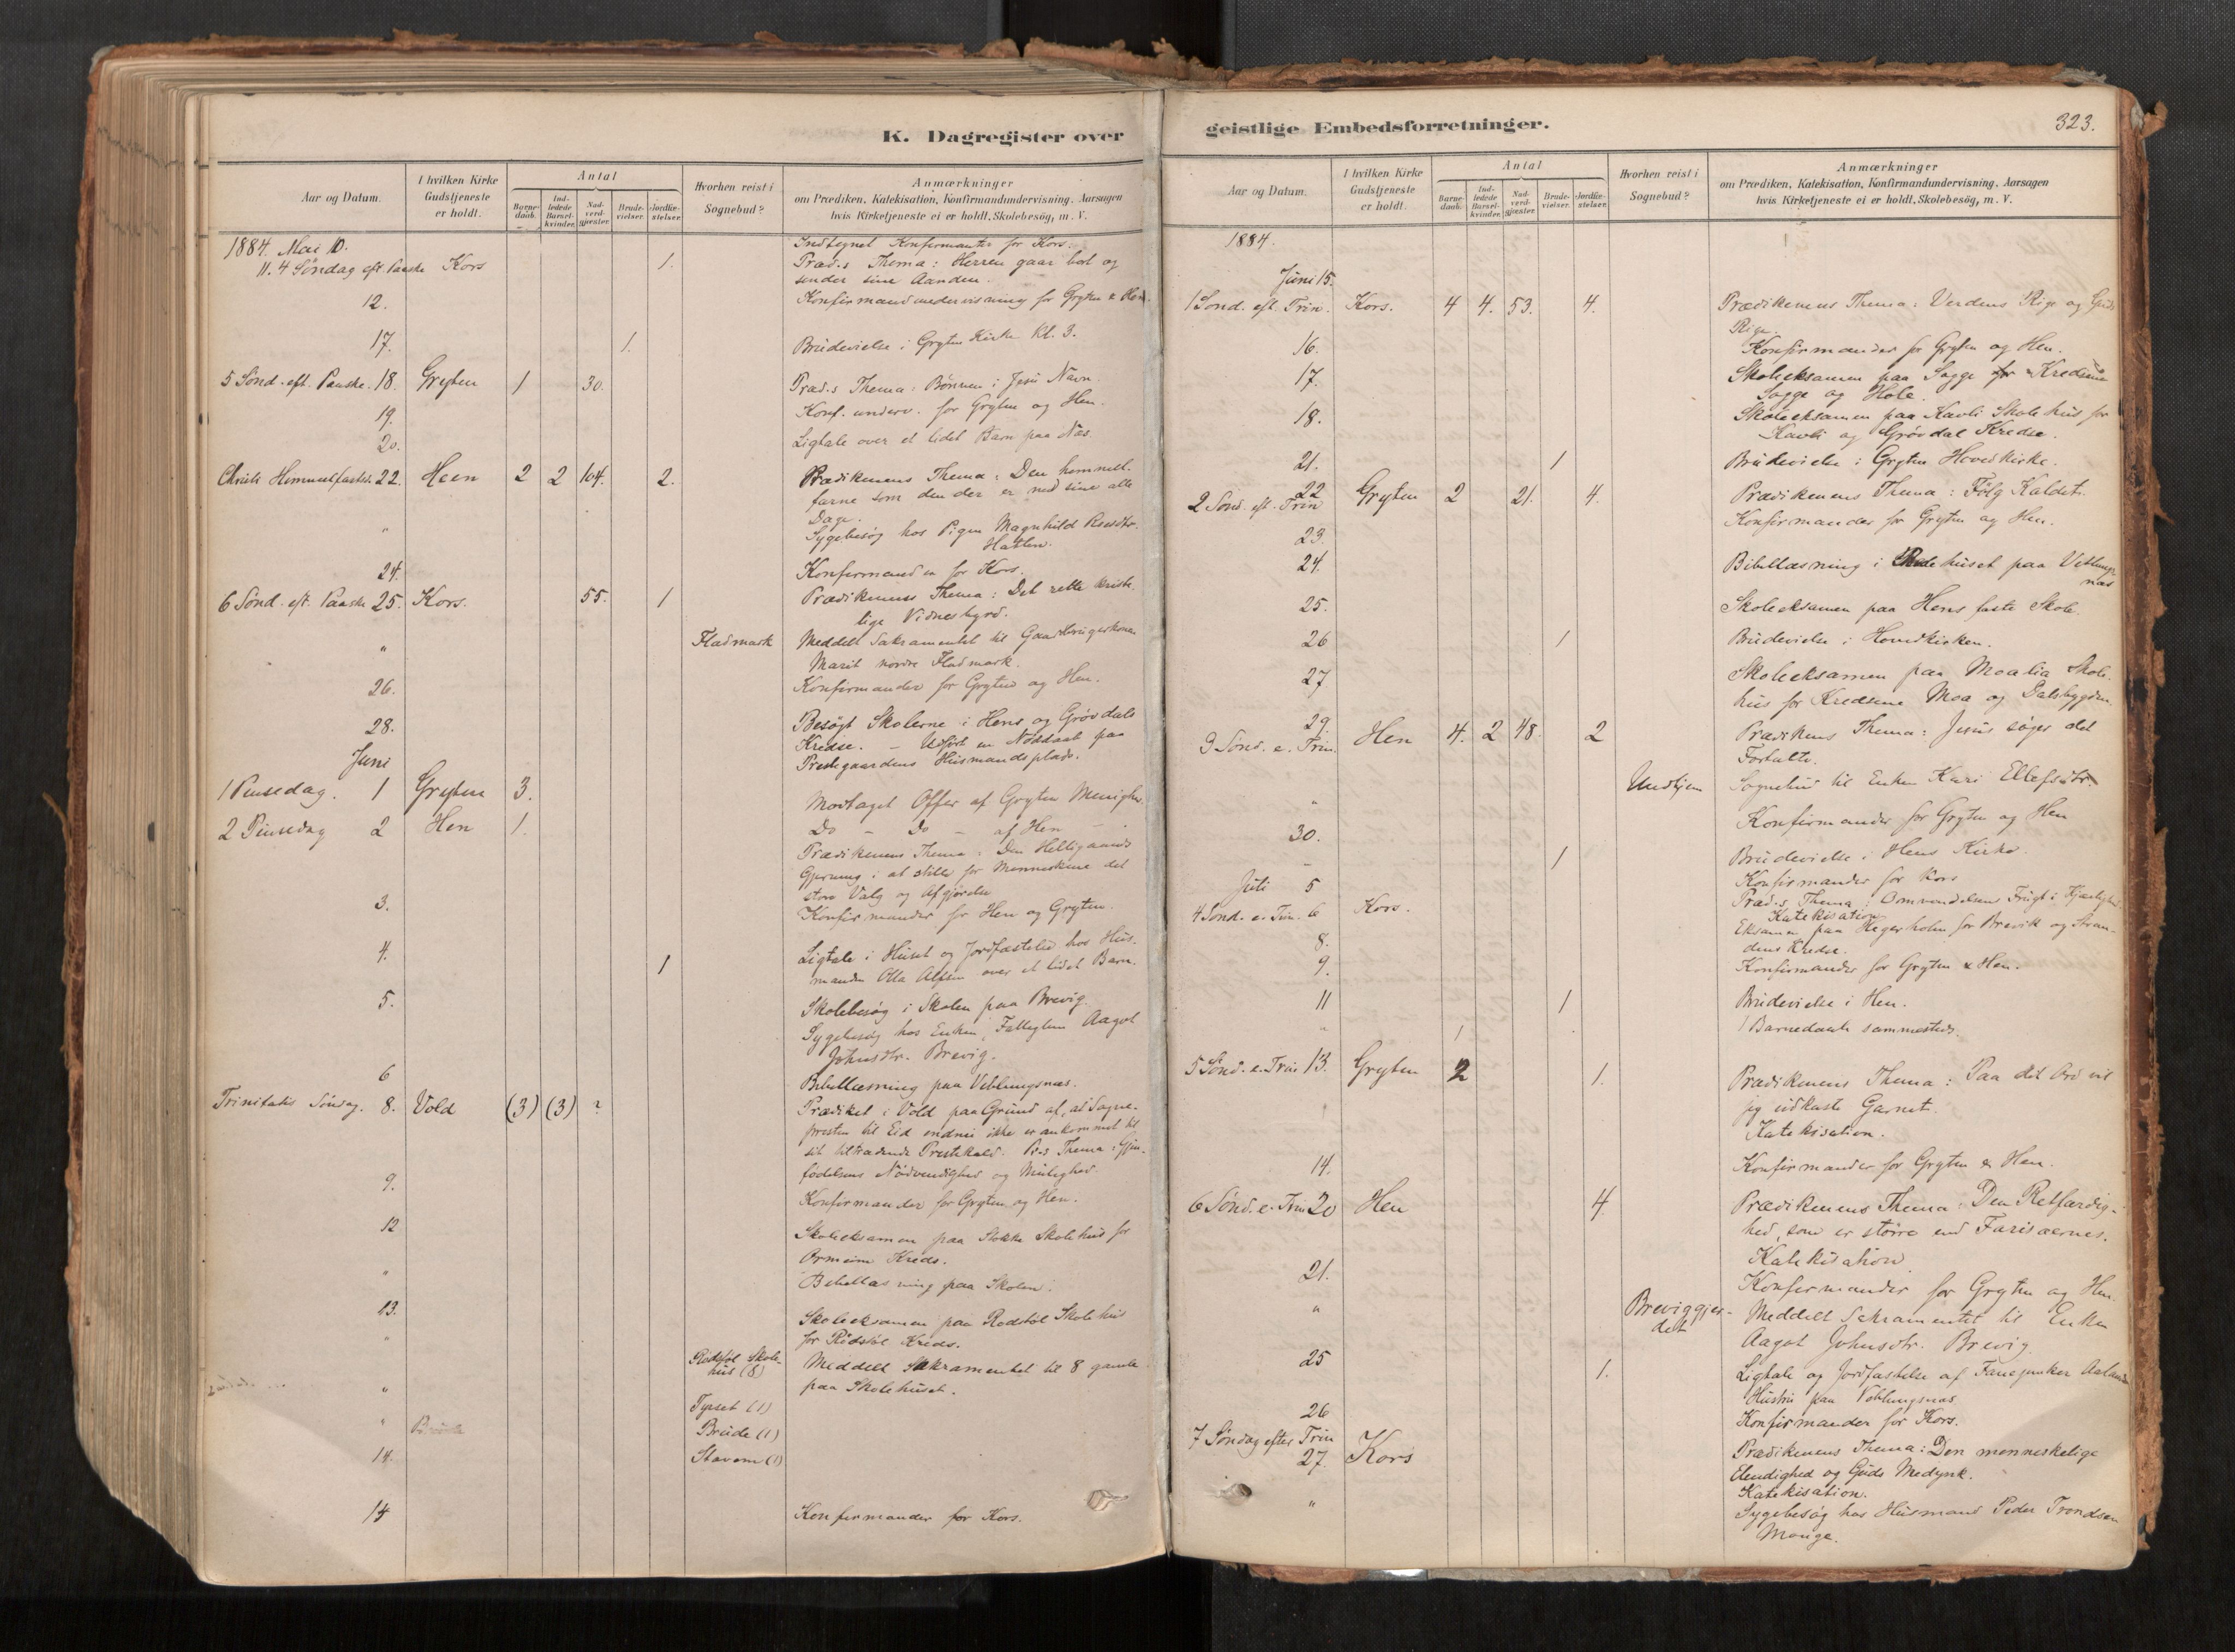 K. Dagregister over
Aar og Datum.
I hvilken Kirke Gudstjeneste er holdt.
Antal
Barnedaab.
Indledede Barselkvinder.
Nadverdgjester
Brudevielser
Jordfæstelser
Hvorhen reist i Sognebud?
Anmærkninger
om Prædiken, Katekisation, Konfirmandundervisning, Aarsagen
hvis Kirketjeneste ei er holdt, Skolebesög, m. V.
1884. Mai 10. Indtegnet Konfirmanter for Kors.
11. 4 Söndag eft. Paaske Kors 1. Præd.s Thema: Herren gaar bort og
sender sine Aanden.
12. Konfirmandundervisning for Gryten & Hen.
17. 1. Brudevielse i Gryten Kirke Kl. 3.
5 Sönd. eft. Paaske. 18. Gryten 1 30. Præd.s Thema: Bönnen i Jesu Navn.
19. Konf. underv. for Gryten og Hen.
20. Ligtale over et lidet Barn paa Næs.
Christi Himmelfartsd. 22. Heen 2 2 104. 2. Prædikenens Thema: Den himmel-
farne som den der er med sine alle
Dage.
" Sygebesög hos Pigen Magnhild
Hatlen.
24. Konfirmander for Kors.
6 Sönd. eft. Paaske 25. Kors. 55. 1 Prædikenens Thema: Det rette krist-
lige Vidnesbyrd.
" Fladmark Meddelt Sakramentet til Gaardbrugerkonen
Marit nordre Fladmark.
26. Konfirmander for Gryten og Hen.
28. Besögt Skolerne i Hens og Grövdals
Kredse. – Udfört en Nöddaab paa
Prestegaardens Husmandsplads.
Juni
1 Pinsedag. 1 Gryten 3. Modtaget Offer af Gryten Menighed.
2 Pinsedag 2 Hen 1. Do – Do – af Hen –
Prædikenens Thema: Den Helligaands
Gjerning i at stille for Menneskene det
store Valg og Afgjörelse
3. Konfirmander for Hen og Gryten.
4. 1 Ligtale i Huset og Jordfæstelse hos Hus-
manden Olla Alfsen over et lidet Barn.
5. Skolebesög i Skolen paa Brevig.
Sygebesög hos Enken, Aagot
Johnsdtr. Brevig.
6 Bibellæsning paa Veblungsnæs.
Trinitatis Söndag. 8. Vold (3) (3) ? Prædiket i Vold paa Grund af, at Sogne-
presten til Eid endnu ikke er ankommet til
sit tiltrædende Prestekald. Thema: Gjen-
fødelsens Nödvendighed og Mulighed.
9. Konfirmander for Gryten og Hen.
12 Skoleeksamen paa Stokke Skolehus for
Ormeim Kreds.
" Bibellæsning paa Skolen.
13. Skoleeksamen paa Rödstöl Skolehus
" for Rödstöl Kreds.
Rödstöl Skole-
hus (8) Meddelt Sakramentet til 8 gamle
" paa Skolehuset.
Tyrset (1)
" Brude Brude (1)
14. Stavem (1)
14 Konfirmander for Kors.
geistlige Embedsforretninger.
323.
Aar og Datum.
I hvilken Kirke Gudstjeneste er holdt.
Antal
Barnedaab.
Indledede Barselkvinder.
Nadverdgjester
Brudevielser.
Jordfæstelser.
Hvorhen reist i Sognebud?
Anmærkninger
om Prædiken, Katekisation, Konfirmandundervisning, Aarsagen
hvis Kirketjeneste ei er holdt, Skolebesög, m. V.
1884.
Juni 15.
1 Sönd. eft. Trin. Kors. 4 4. 53. 4. Prædikenens Thema: Verdens Rige og Guds
Rige.
16. Konfirmander for Gryten og Hen.
17. Skoleeksamen paa Sogge for Kredsene
Sogge og Hole.
18. Skoleeksamen paa Kavli Skolehus for
Kavli og Grövdal Kredse.
21. 1 Brudevielse i Gryten Hovedkirke.
22
2 Sönd. eft. Trin Gryten 2 21. 4. Prædikenens Thema: Fölg Kaldet.
23. Konfirmander for Gryten og Hen.
24. Bibellæsning i huset paa Veblungs-
næs
25. Skoleeksamen paa Hens faste Skole.
26 1 Brudevielse i Hovedkirken.
27 Skoleeksamen paa Moalia Skole-
hus for Kredsene Moa og Dalsbygden.
29.
3 Sönd. e. Trin. Hen 4. 2 48. 2 Prædikens Thema: Jesus söger det
Fortabte.
" Undhjem Sognebud til Enken Kari Ellefsdtr.
30. Konfirmander for Gryten og Hen
– 1 Brudevielse i Hens Kirke.
Juli 5 Konfirmander for Kors
4 Sönd. e. Trin. 6 Kors. Præd.s Thema: Omvendelsens Frugt i Kjærlighed
Katekisation
8. Eksamen paa Hegerholm for Brevik og Stran-
dens Kredse.
9. Konfirmander for Gryten & Hen.
11 1 Brudevielse i Hen.
" 1 1 Barnedaab sammesteds.
5 Sönd. e. Trin 13. Gryten 2 1. Prædikenens Thema: Paa dit Ord vil
jeg udkaste Garnet.
Katekisation.
14. Konfirmander for Gryten & Hen.
6 Sönd. e. Trin 20 Hen 4. Prædikenens Thema: Den Retfærdig-
hed, som er större end Farisæernes.
Katekisation
21. Konfirmander for Gryten og Hen.
" Breviggjer-
det Meddelt Sakramentet til Enken
Aagot Johnsdtr. Brevig.
25 1. Ligtale og Jordfæstelse af Fanejunker
Hustru paa Veblungsnæs
26 Konfirmander for Kors.
7 Söndag efter Trin
27. Kors Prædikenens Thema: Den menneskelige
Elendighed og Guds Medynk.
Katekisation.
" Sygebesög hos Husmand Peder Trondsen
Monge.